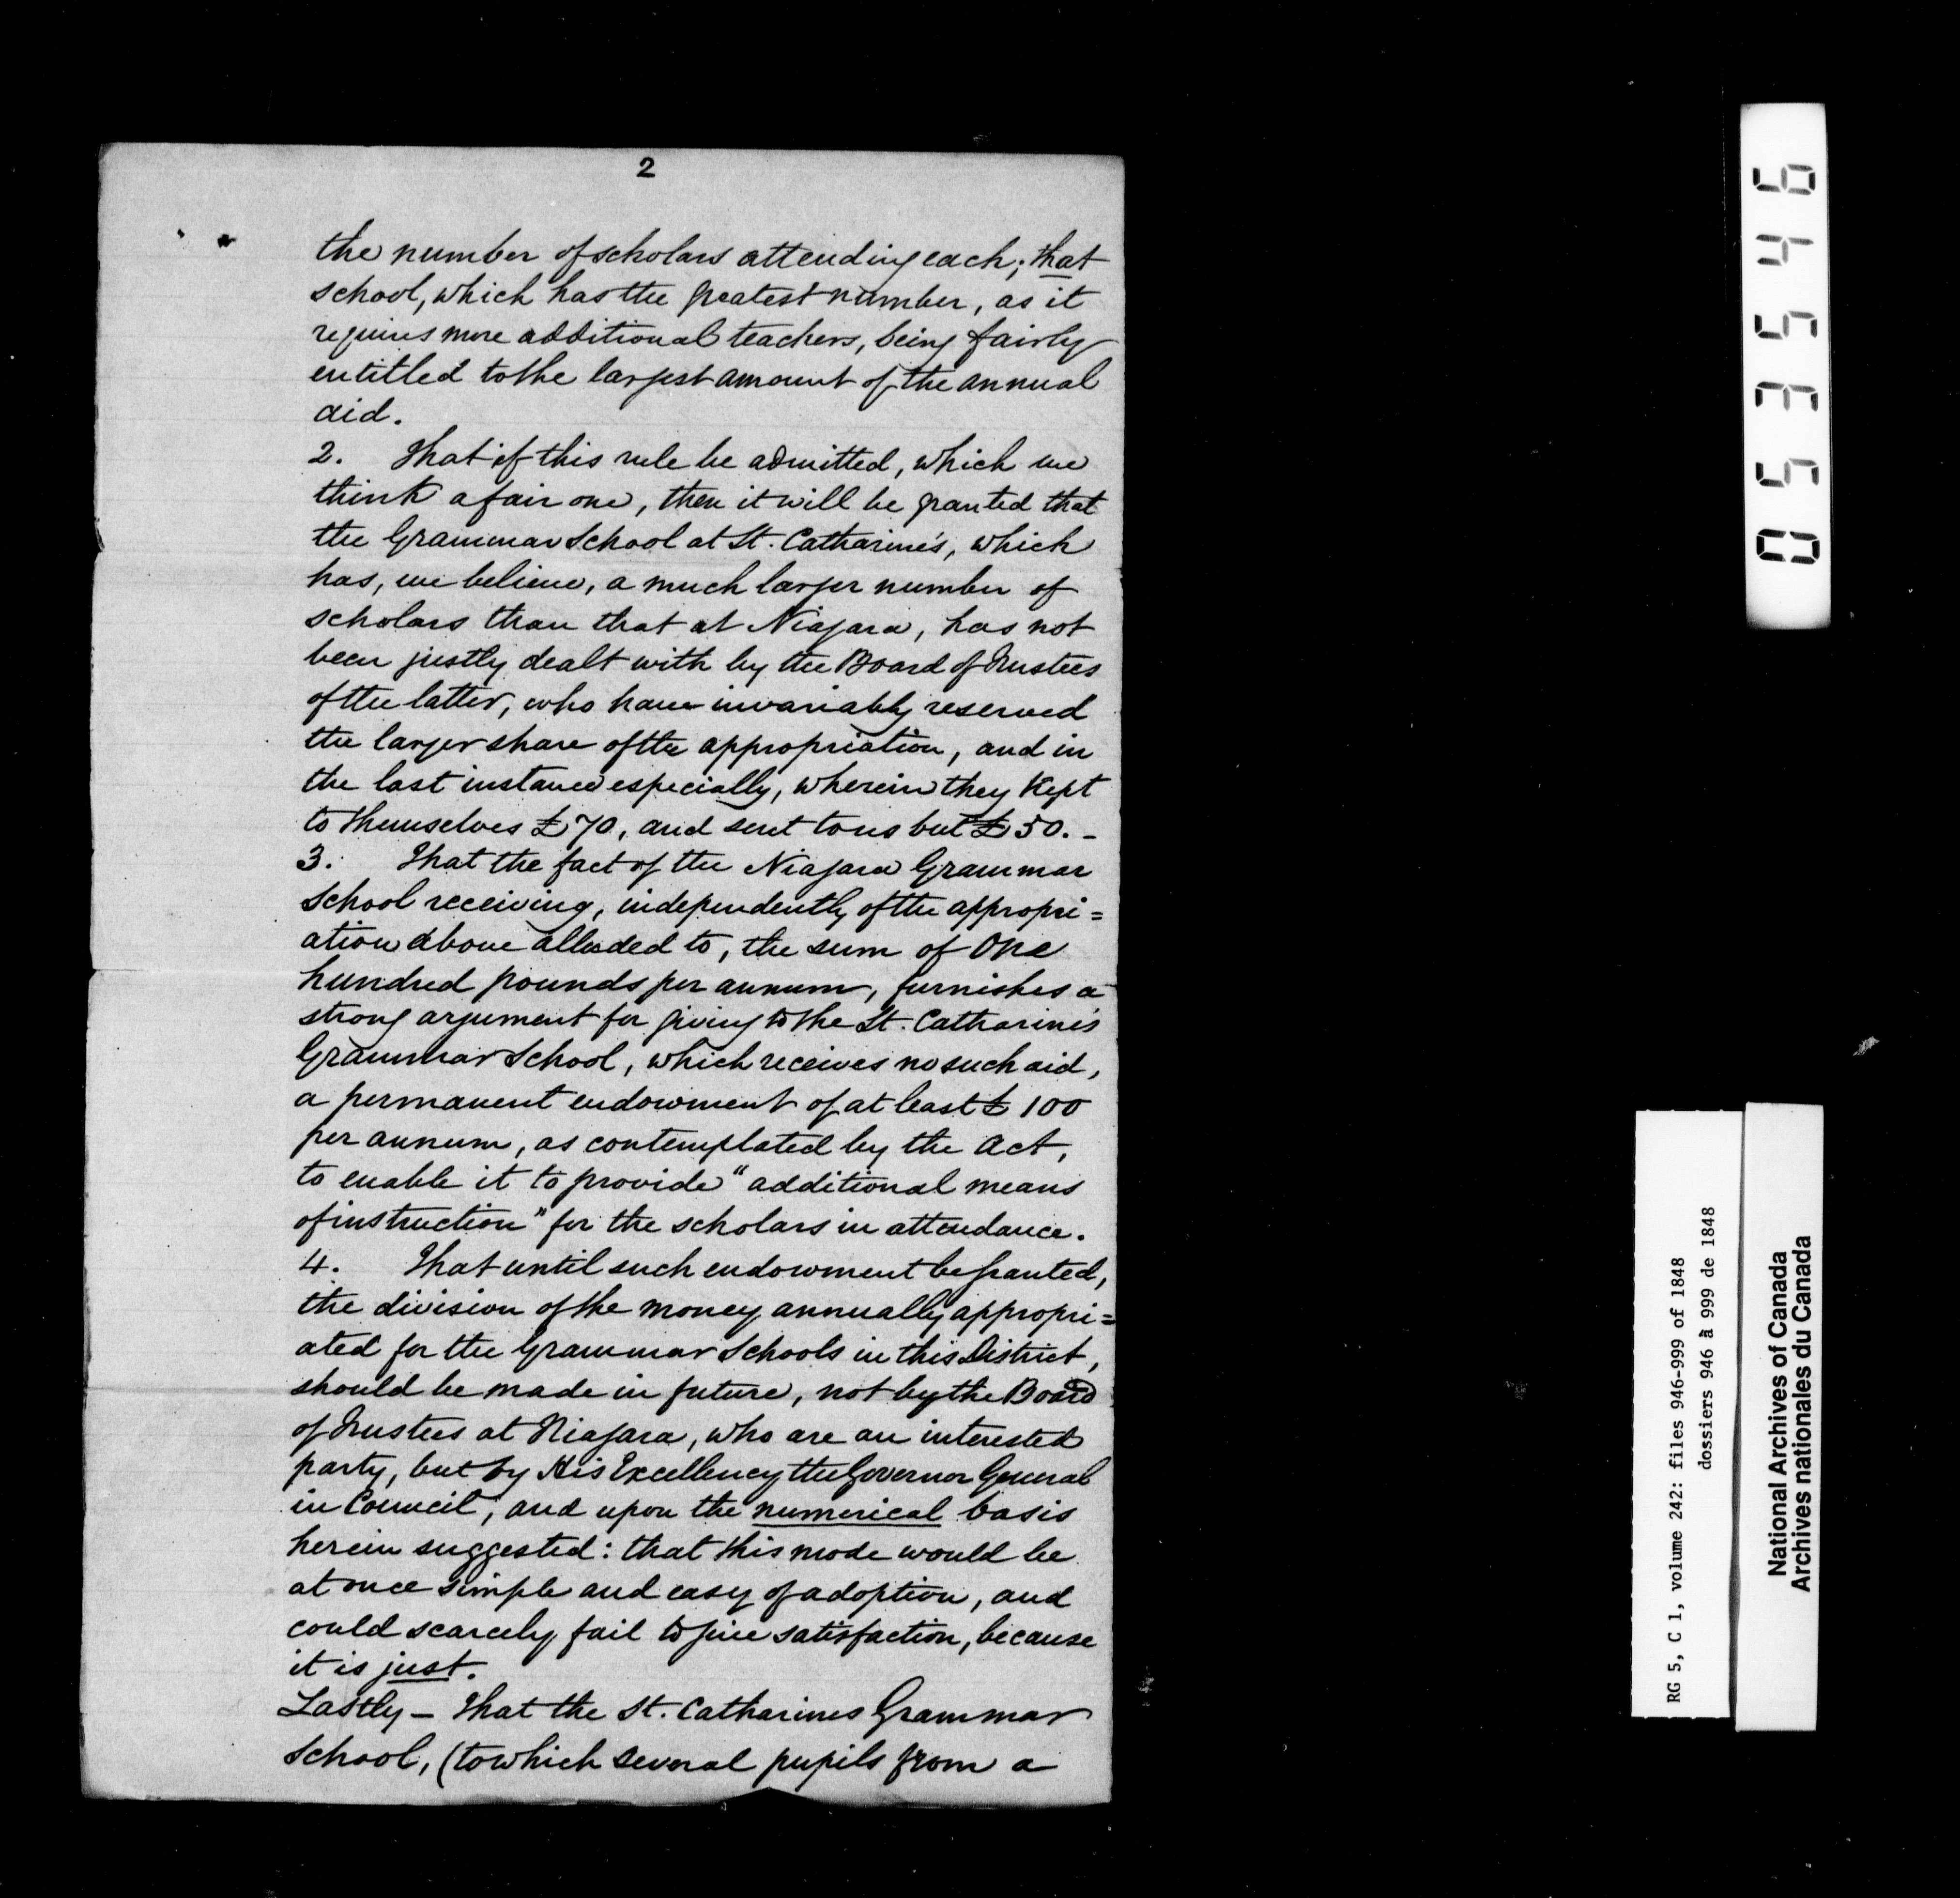 2
the number of scholars attending each; that
school, which has the greatest number, as it
requires more additional teachers, being fairly
entitled to the largest amount of the annual
aid.
2. That if this rule be admitted, which we
think a fair one, then it will be granted that
the Grammar School at St. Catharine's, which
has, we believe, a much larger number of
scholars than that at Niagara, has not
been justly dealt with by the Board of Trustees
of the latter, who have invariably reserved
the larger share of the appropriation, and in
the last instance especially, wherein they kept
to themselves £70, and sent to us but £50. -
3. That the fact of the Niagara Grammar
School receiving, independently of the appropri=
ation above alluded to, the sum of One
hundred pounds per annum, furnishes a
strong argument for giving to the St. Catharine's
Grammar School, which receives no such aid,
a permanent endowment of at least £100
per annum, as contemplated by the Act,
to enable it to provide "additional means
of instruction" for the scholars in attendance.
4. That until such endowment be granted,
the division of the money annually appropri=
ated for the Grammar Schools in this District,
should be made in future, not by the Board
of Trustees at Niagara, who are an interested
party, but by His Excellency the Governor General
in Council, and upon the numerical basis
herein suggested: that this mode would be
at once simple and easy of adoption, and
could scarcely fail to give satisfaction, because
it is just.
Lastly - That the St. Catharines Grammar
School, (to which several pupils from a
053546
RG 5, C 1, volume 242: files 946-999 of 1848
dossiers 946 à 999 de 1848
National Archives of Canada
Archives nationales du Canada